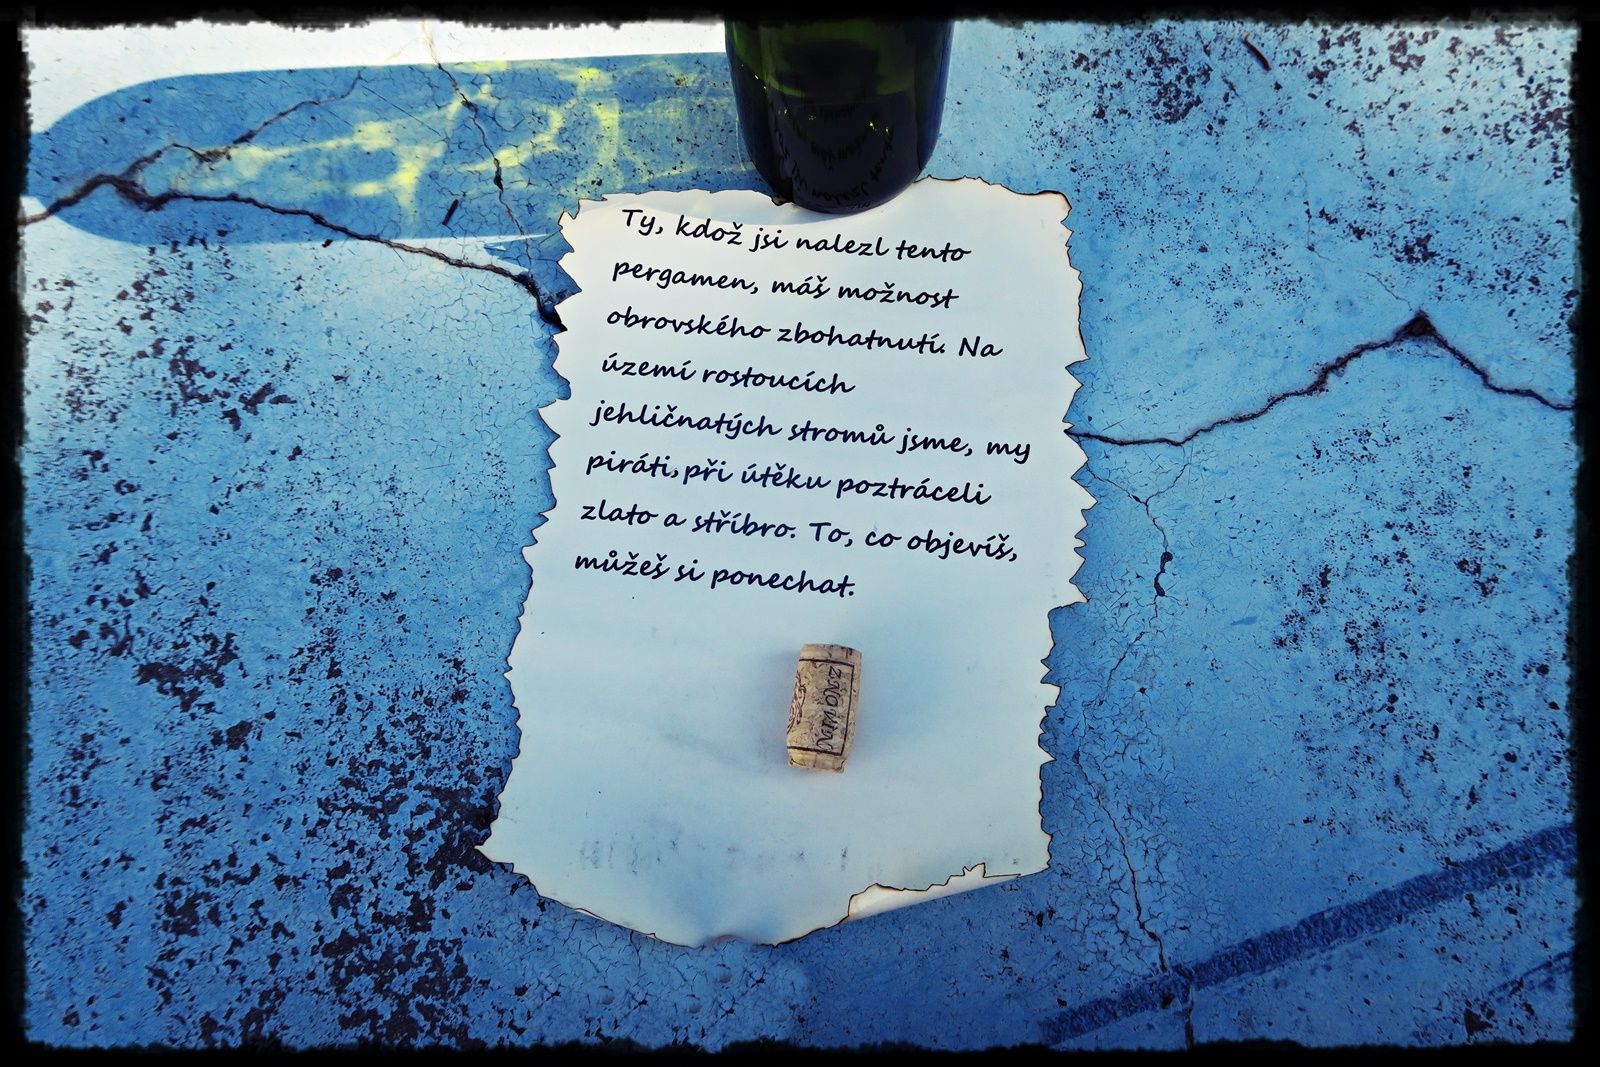 Ty, kdož jsi nalezl tento
pergamen, máš možnost
obrovského zbohatnutí. Na
území rostoucích
jehličnatých stromů jsme, my
piráti, při útěku poztráceli
zlato a stříbro. To, co objevíš,
můžeš si ponechat.